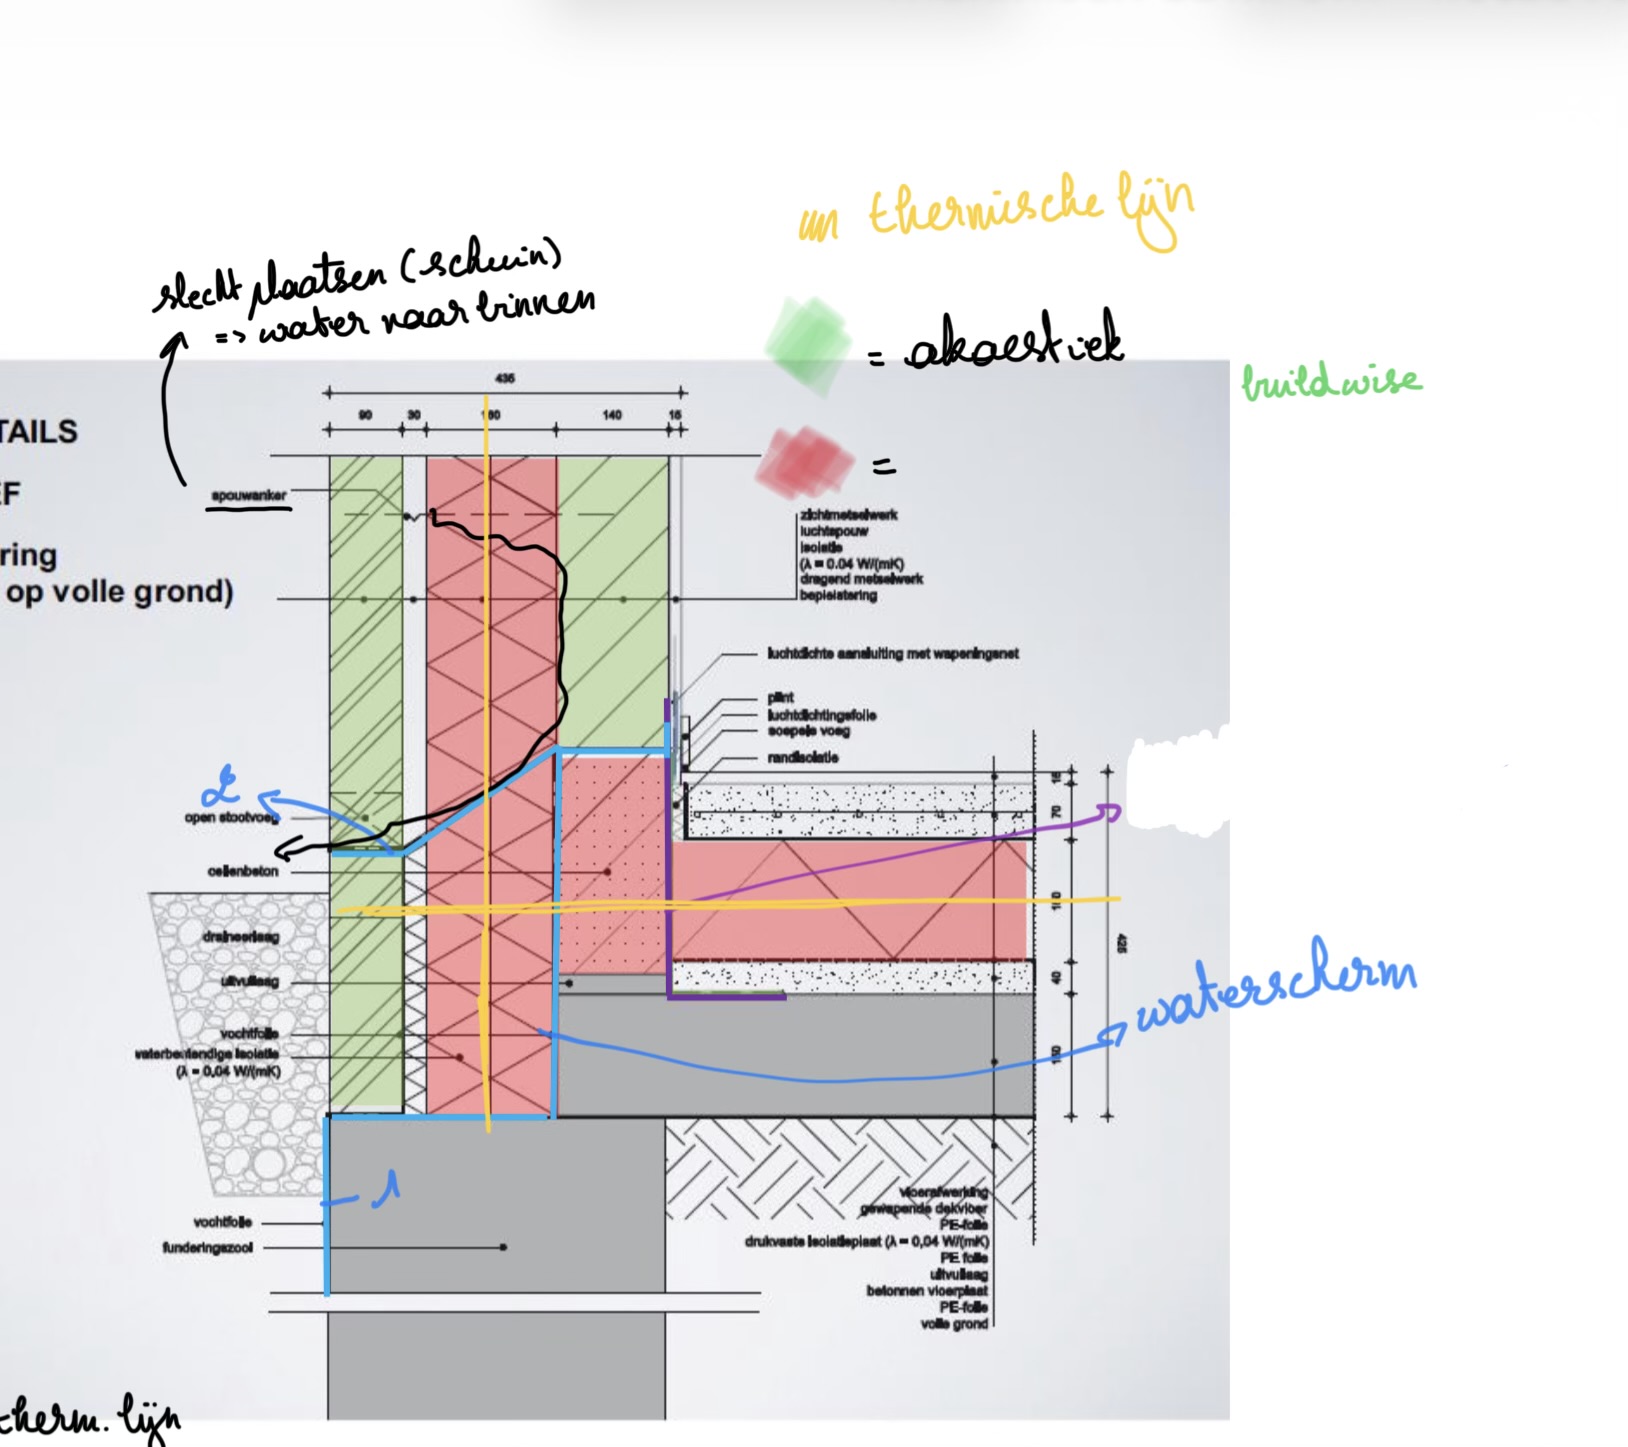 un thermische lijn
slecht plaatsen (schuin)
=> water naar binnen
= akoestiek
buildwise
435
90 30 140 15
TAILS
=
EF
spouwanker
zichtmetselwerk
luchtspouw
isolatie
(λ = 0.04 W/(mK)
dragend metselwerk
bepleistering
ring
op volle grond)
luchtdichte aansluiting met wapeningsnet
plint
luchtdichtingsfolie
soepele voeg
randisolatie
2
open stootvoeg
15
70
cellenbeton
draineerlaag
425
uitvullaag
40
waterscherm
vochtfolie
waterbestendige isolatie
(λ = 0,04 W/(mK)
1
vochtfolie
funderingszool
vloerafwerking
gewapende dekvloer
PE-folie
drukvaste isolatieplaat (λ = 0,04 W/(mK)
PE folie
uitvullaag
betonnen vloerplaat
PE-folie
volle grond
therm. lijn